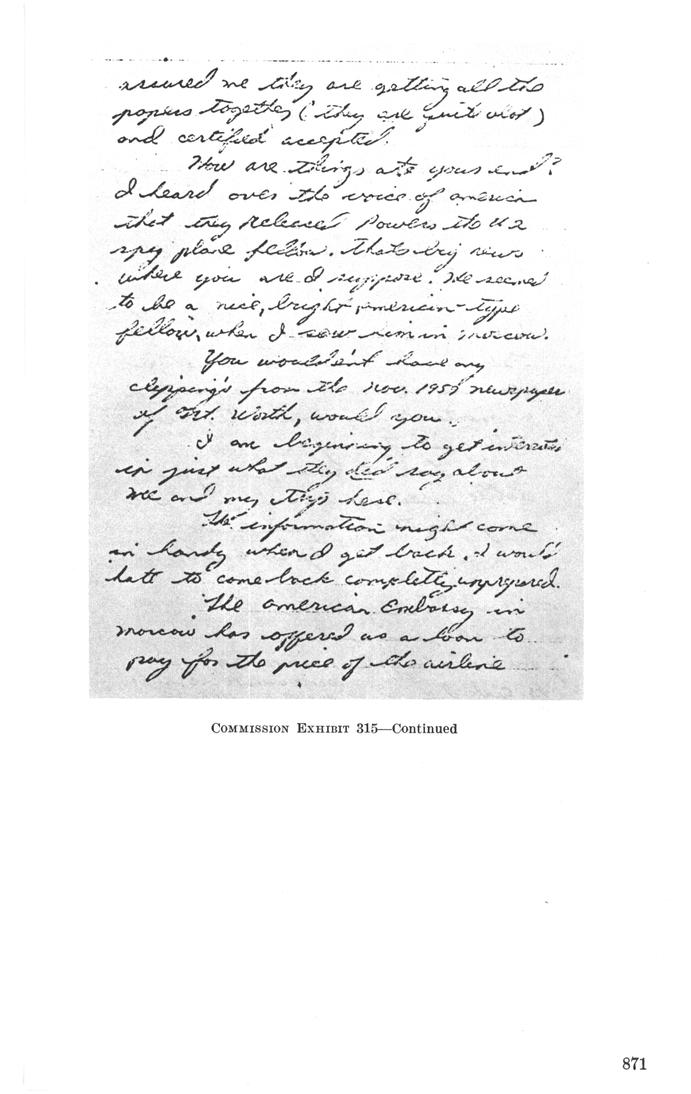 assured me they are getting all the
papers together (they are quite alot)
and certified accepted.
How are things at yours end?
I heard over the voice of america
that they released Powers the U2
spy plane fellow. thats big news
where you are I suppose. He seemed
to be a nice, bright american-type
fellow, when I saw him in moscow.
You wouldent have any
clipping's from the Nov. 1959 newspaper
of Ft. Worth, would you.
I am beginning to get interested
in just what they did say about
me and my trip here.
The information might come
in handy when I get back, I would
hate to come back completly unprepared.
The american Embassy in
moscow has offered us a loan to
pay for the price of the airline
COMMISSION EXHIBIT 315—Continued
871